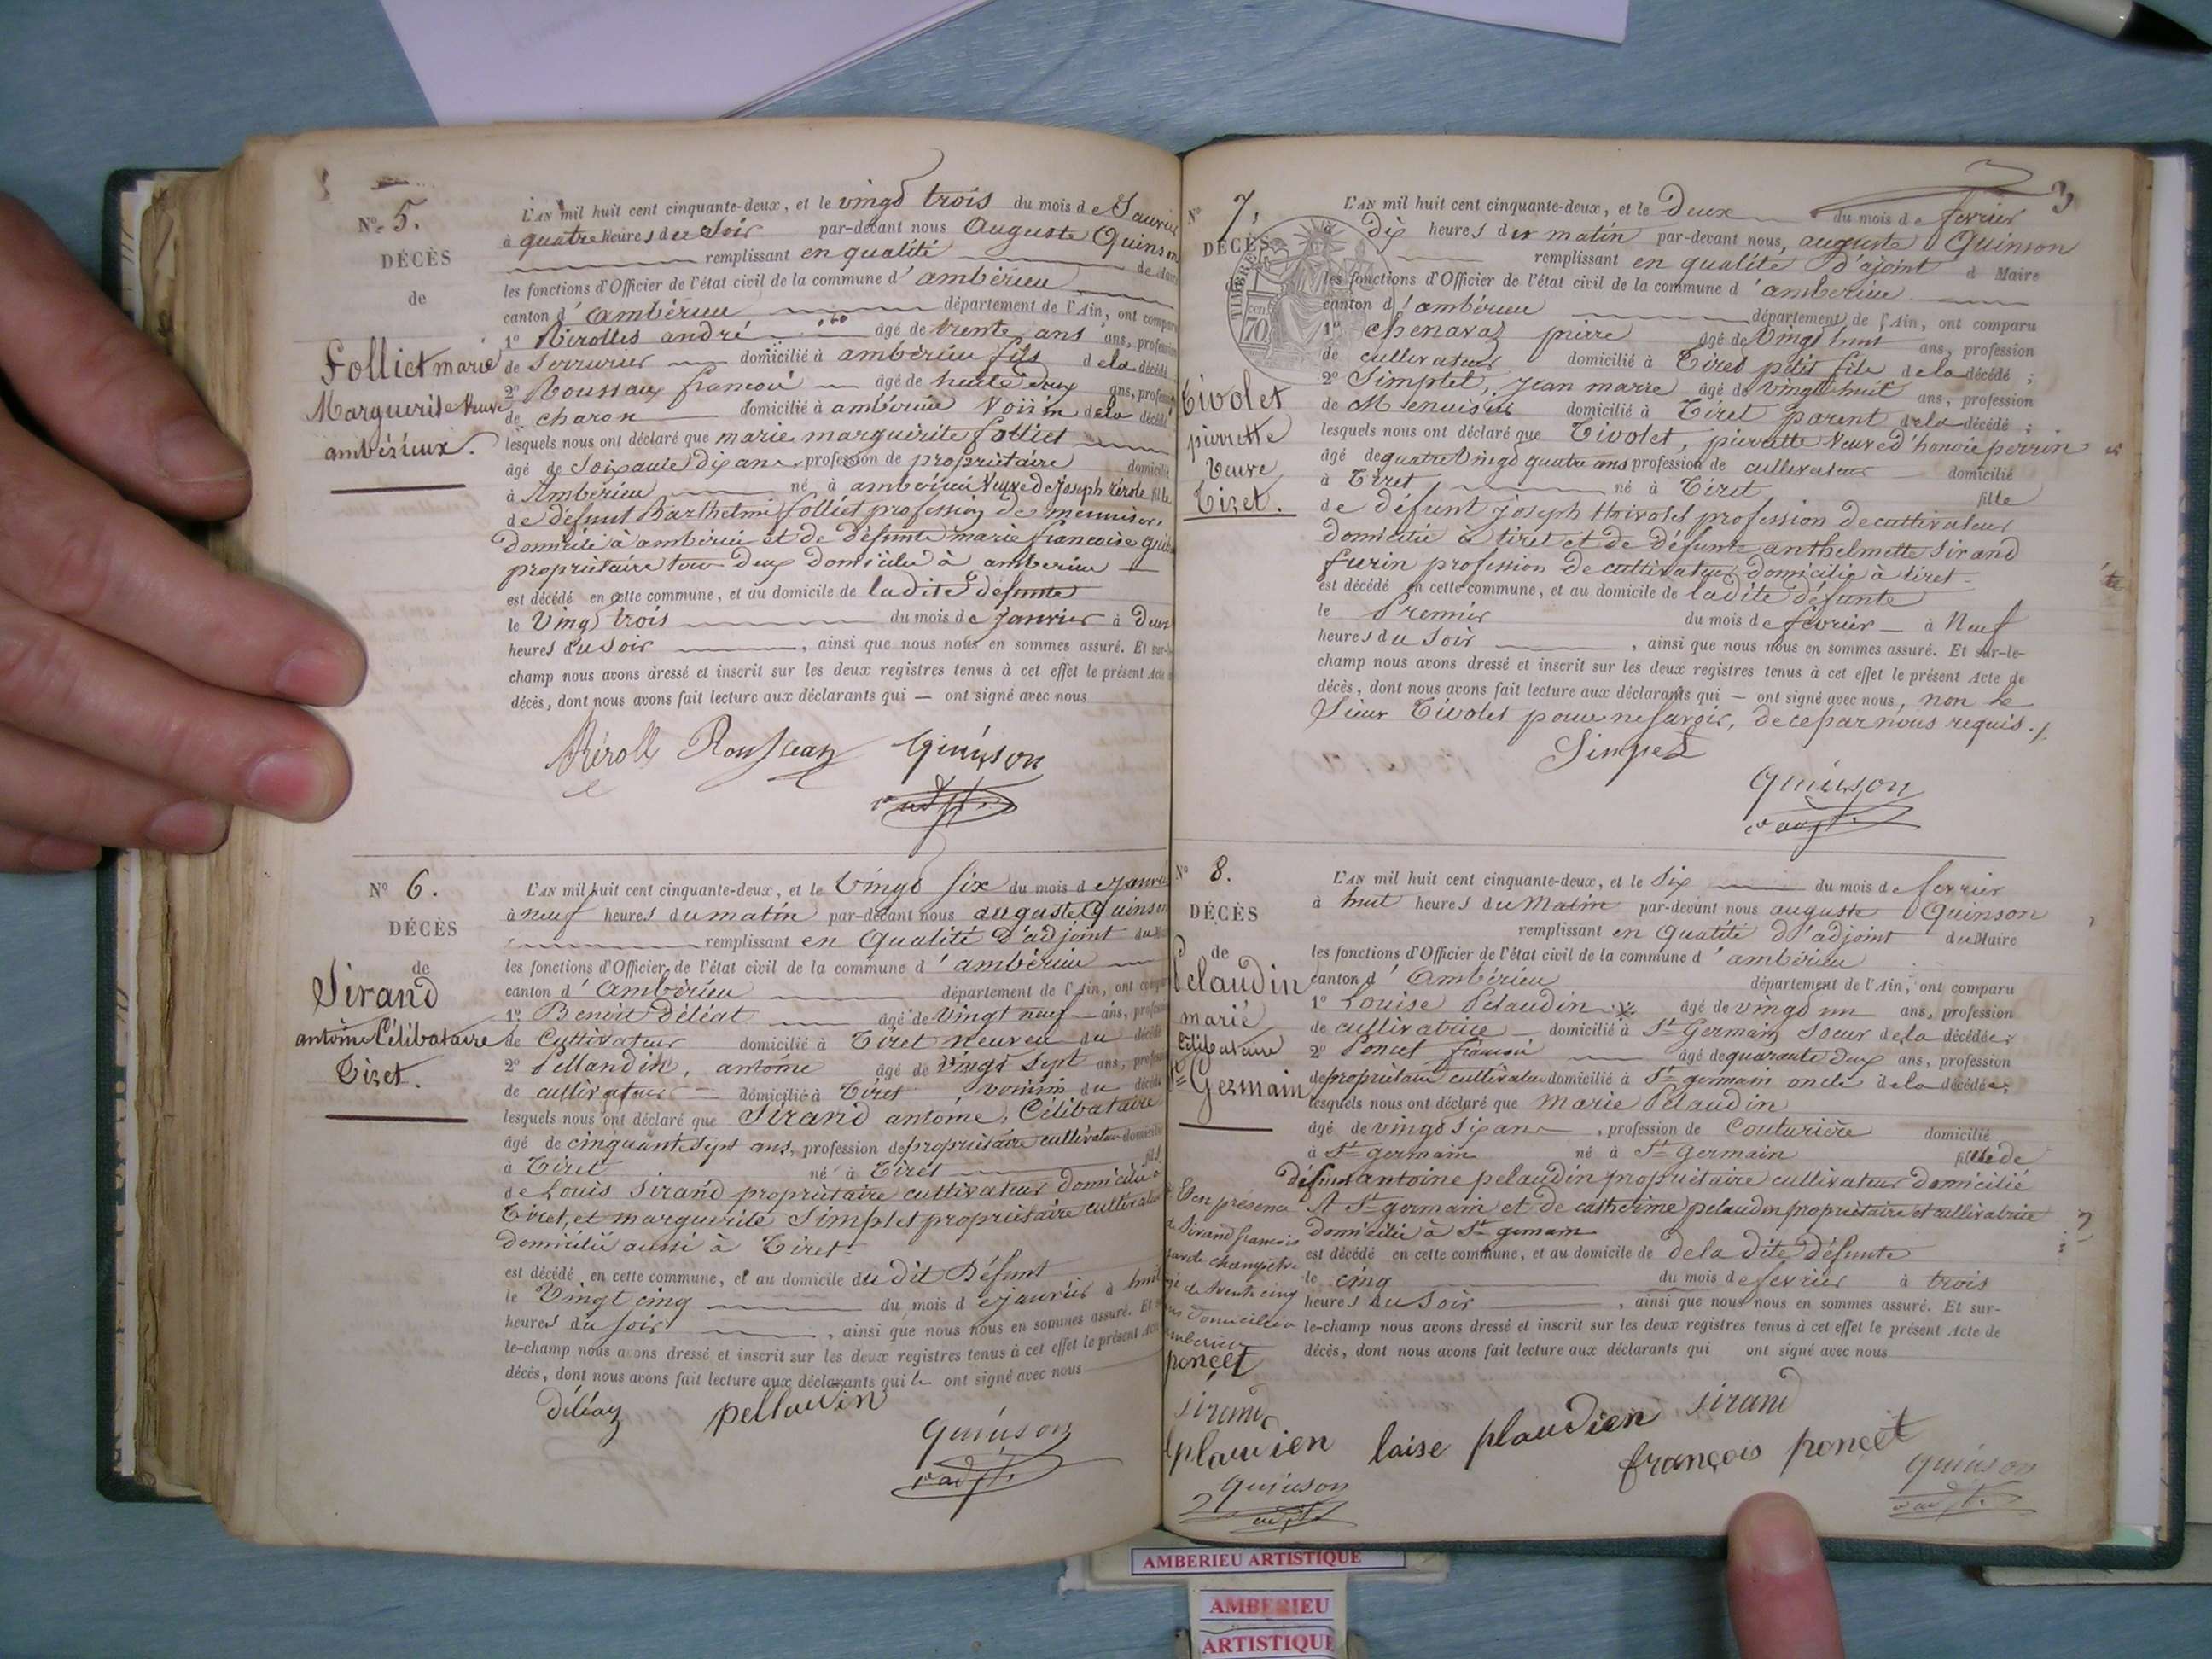 N° 5.
DÉCÈS
de
Folliet marie
Marguerite Veuve
ambérieux.
L'AN mil huit cent cinquante-deux, et le vingt trois du mois de Janvier
à quatre heures du Soir par-devant nous Auguste Quinson
remplissant en qualité
les fonctions d'Officier de l'état civil de la commune d'ambérieu
canton d'Ambérieu département de l'Ain, ont comparu
1° Rirolles andré âgé de trente ans ans, profession
de Serrurier domicilié à ambérieu fils de la décédé
2° Roussaux francois âgé de trente deux ans, profession
de charon domicilié à ambérieu Voisin de la décédé
lesquels nous ont déclaré que marie marguerite folliet
âgé de Soixante dix ans, profession de propriétaire domicilié
à Ambérieu né à ambérieu Veuve de Joseph fille
de défunt Barthelmi folliet profession de menuisier,
domicilié à ambérieu et de défunte marie francoise
propriétaire tous deux domiciliés à ambérieu
est décédé en cette commune, et au domicile de ladite défunte
le Vingt trois du mois de Janvier à Deux
heures du Soir, ainsi que nous nous en sommes assuré. Et sur-le-
champ nous avons dressé et inscrit sur les deux registres tenus à cet effet le présent Acte
décès, dont nous avons fait lecture aux déclarants qui — ont signé avec nous
Rérolle Rousseau Quinson
N° 6.
DÉCÈS
de
Sirand
antoine Célibataire
Tiret.
L'AN mil huit cent cinquante-deux, et le Vingt six du mois de Janvier
à neuf heures du matin par-devant nous auguste Quinson
remplissant en Qualité d'adjoint du
les fonctions d'Officier de l'état civil de la commune d'ambérieu
canton d'Ambérieu département de l'Ain, ont comparu
1° Benoit déléat âgé de Vingt neuf ans, profession
de Cultivateur domicilié à Tiret neuveu du décédé
2° Pellandin, antoine âgé de Vingt Sept ans, profession
de cultivateur domicilié à Tiret voisin du décédé
lesquels nous ont déclaré que Sirand antoine, Célibataire
âgé de cinquante sept ans, profession de propriétaire cultivateur domicilié
à Tiret né à Tiret fils
de Louis Sirand propriétaire cultivateur domicilié à
Tiret, et marguerite Simplet propriétaire cultivateur
domicilié aussi à Tiret
est décédé en cette commune, et au domicile du dit Défunt
le Vingt cinq du mois de janvier à huit
heures du soir, ainsi que nous nous en sommes assuré. Et
le-champ nous avons dressé et inscrit sur les deux registres tenus à cet effet le présent Acte
décès, dont nous avons fait lecture aux déclarants qui ont signé avec nous
déléaz pellaudin
Quinson
3
N° 7.
DÉCÈS
TIMBRE
70
Tivolet
pierrette
Veuve
Tiret.
L'AN mil huit cent cinquante-deux, et le Deux du mois de février
à Dix heures du matin par-devant nous, auguste Quinson
remplissant en qualité d'ajoint d Maire
les fonctions d'Officier de l'état civil de la commune d'ambérieu
canton d'ambérieu département de l'Ain, ont comparu
1° chenavaz pierre âgé de Vingt huit ans, profession
de cultivateur domicilié à Tiret petit fils de la décédé ;
2° Simplet, jean marie âgé de vingt huit ans, profession
de Menuisier domicilié à Tiret parent de la décédé ;
lesquels nous ont déclaré que Tivolet, pierrette Veuve d'honoré perrin
âgé de quatre Vingt quatre ans profession de cultivateur domicilié
à Tiret né à Tiret fille
de défunt joseph thivolet profession de cultivateur
domicilié à tiret et de défunte anthelmette Sirand
furin profession de cultivateur domicilié à tiret
est décédé en cette commune, et au domicile de ladite défunte
le Premier du mois de février à Neuf
heures du Soir, ainsi que nous nous en sommes assuré. Et sur-le-
champ nous avons dressé et inscrit sur les deux registres tenus à cet effet le présent Acte de
décès, dont nous avons fait lecture aux déclarants qui — ont signé avec nous, non le
Sieur Tivolet pour ne savoir, de ce par nous requis.
Simplet
Quinson
N° 8.
DÉCÈS
de
Pelaudin
marie
Célibataire
St Germain
L'AN mil huit cent cinquante-deux, et le Six du mois de février
à huit heures du Matin par-devant nous auguste Quinson
remplissant en Qualité d'adjoint du Maire
les fonctions d'Officier de l'état civil de la commune d'ambérieu
canton d'Ambérieu département de l'Ain, ont comparu
1° Louise Pelaudin âgé de vingt un ans, profession
de cultivatrice domicilié à St Germain Soeur de la décédée;
2° Poncet francois âgé de quarante deux ans, profession
de propriétaire cultivateur domicilié à St germain oncle de la décédée;
lesquels nous ont déclaré que Marie Pelaudin
âgé de vingt six ans, profession de Couturière domicilié
à St germain né à St Germain fille de
défunt antoine pelaudin propriétaire cultivateur domicilié
A St germain et de catherine pelaudin propriétaire et cultivatrice
domicilié à St germain
est décédé en cette commune, et au domicile de de la dite Défunte
le cinq du mois de février à trois
heures du Soir, ainsi que nous nous en sommes assuré. Et sur-
le-champ nous avons dressé et inscrit sur les deux registres tenus à cet effet le présent Acte de
décès, dont nous avons fait lecture aux déclarants qui ont signé avec nous
Et en présence
de Sirand francois
garde champêtre
âgé de trente cinq
ans domicilié à
ambérieu
poncet
Sirand
plaudien
Quinson
laise plaudien Sirand
françois poncet
Quinson
AMBERIEU ARTISTIQUE
AMBERIEU
ARTISTIQUE